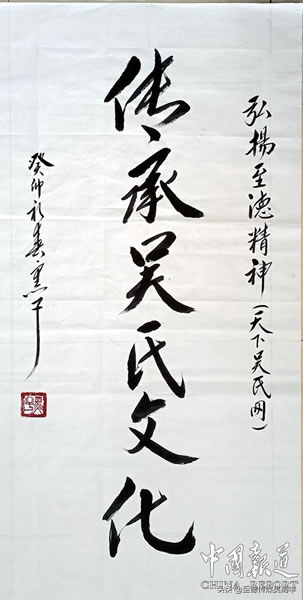 弘揚至德精神（天下吴氏网）
传承吴氏文化
癸卯初春
中国報道
CHINA REPORT
头条